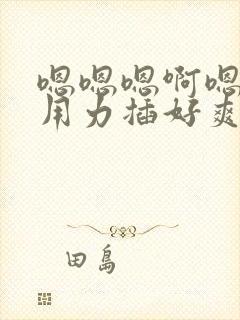 嗯嗯嗯啊嗯
用力插好爽
田島